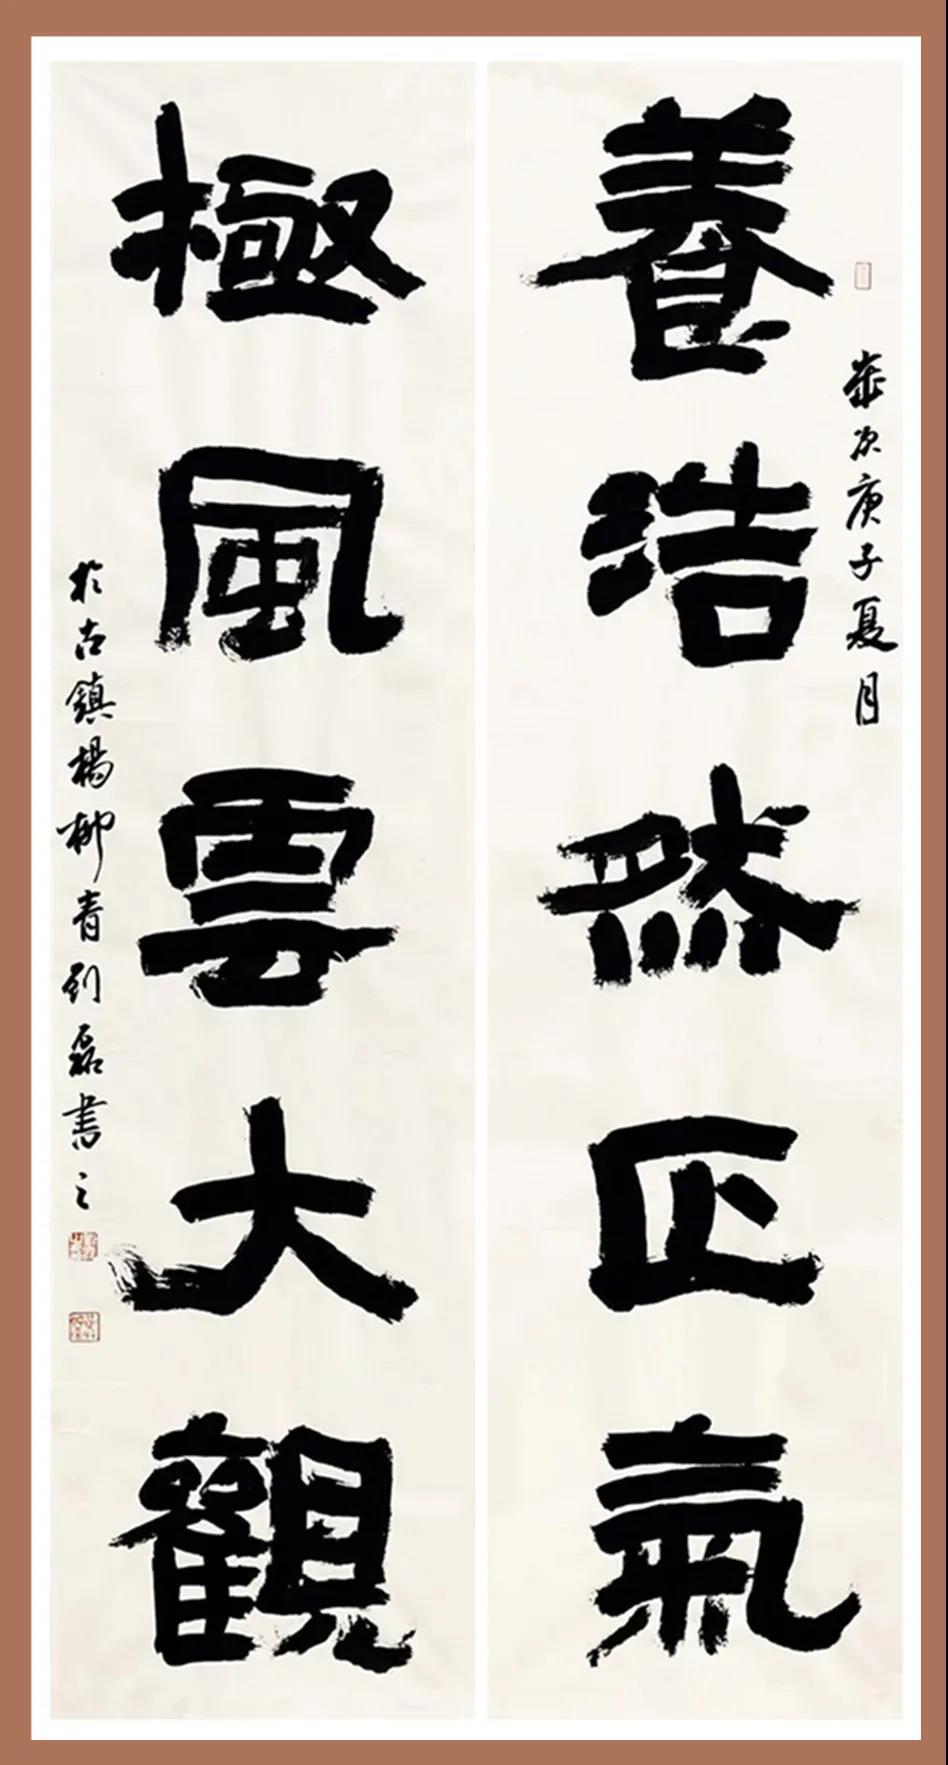 歲次庚子夏月
養浩然正氣
極風雲大觀
於古鎮楊柳青劉磊書之